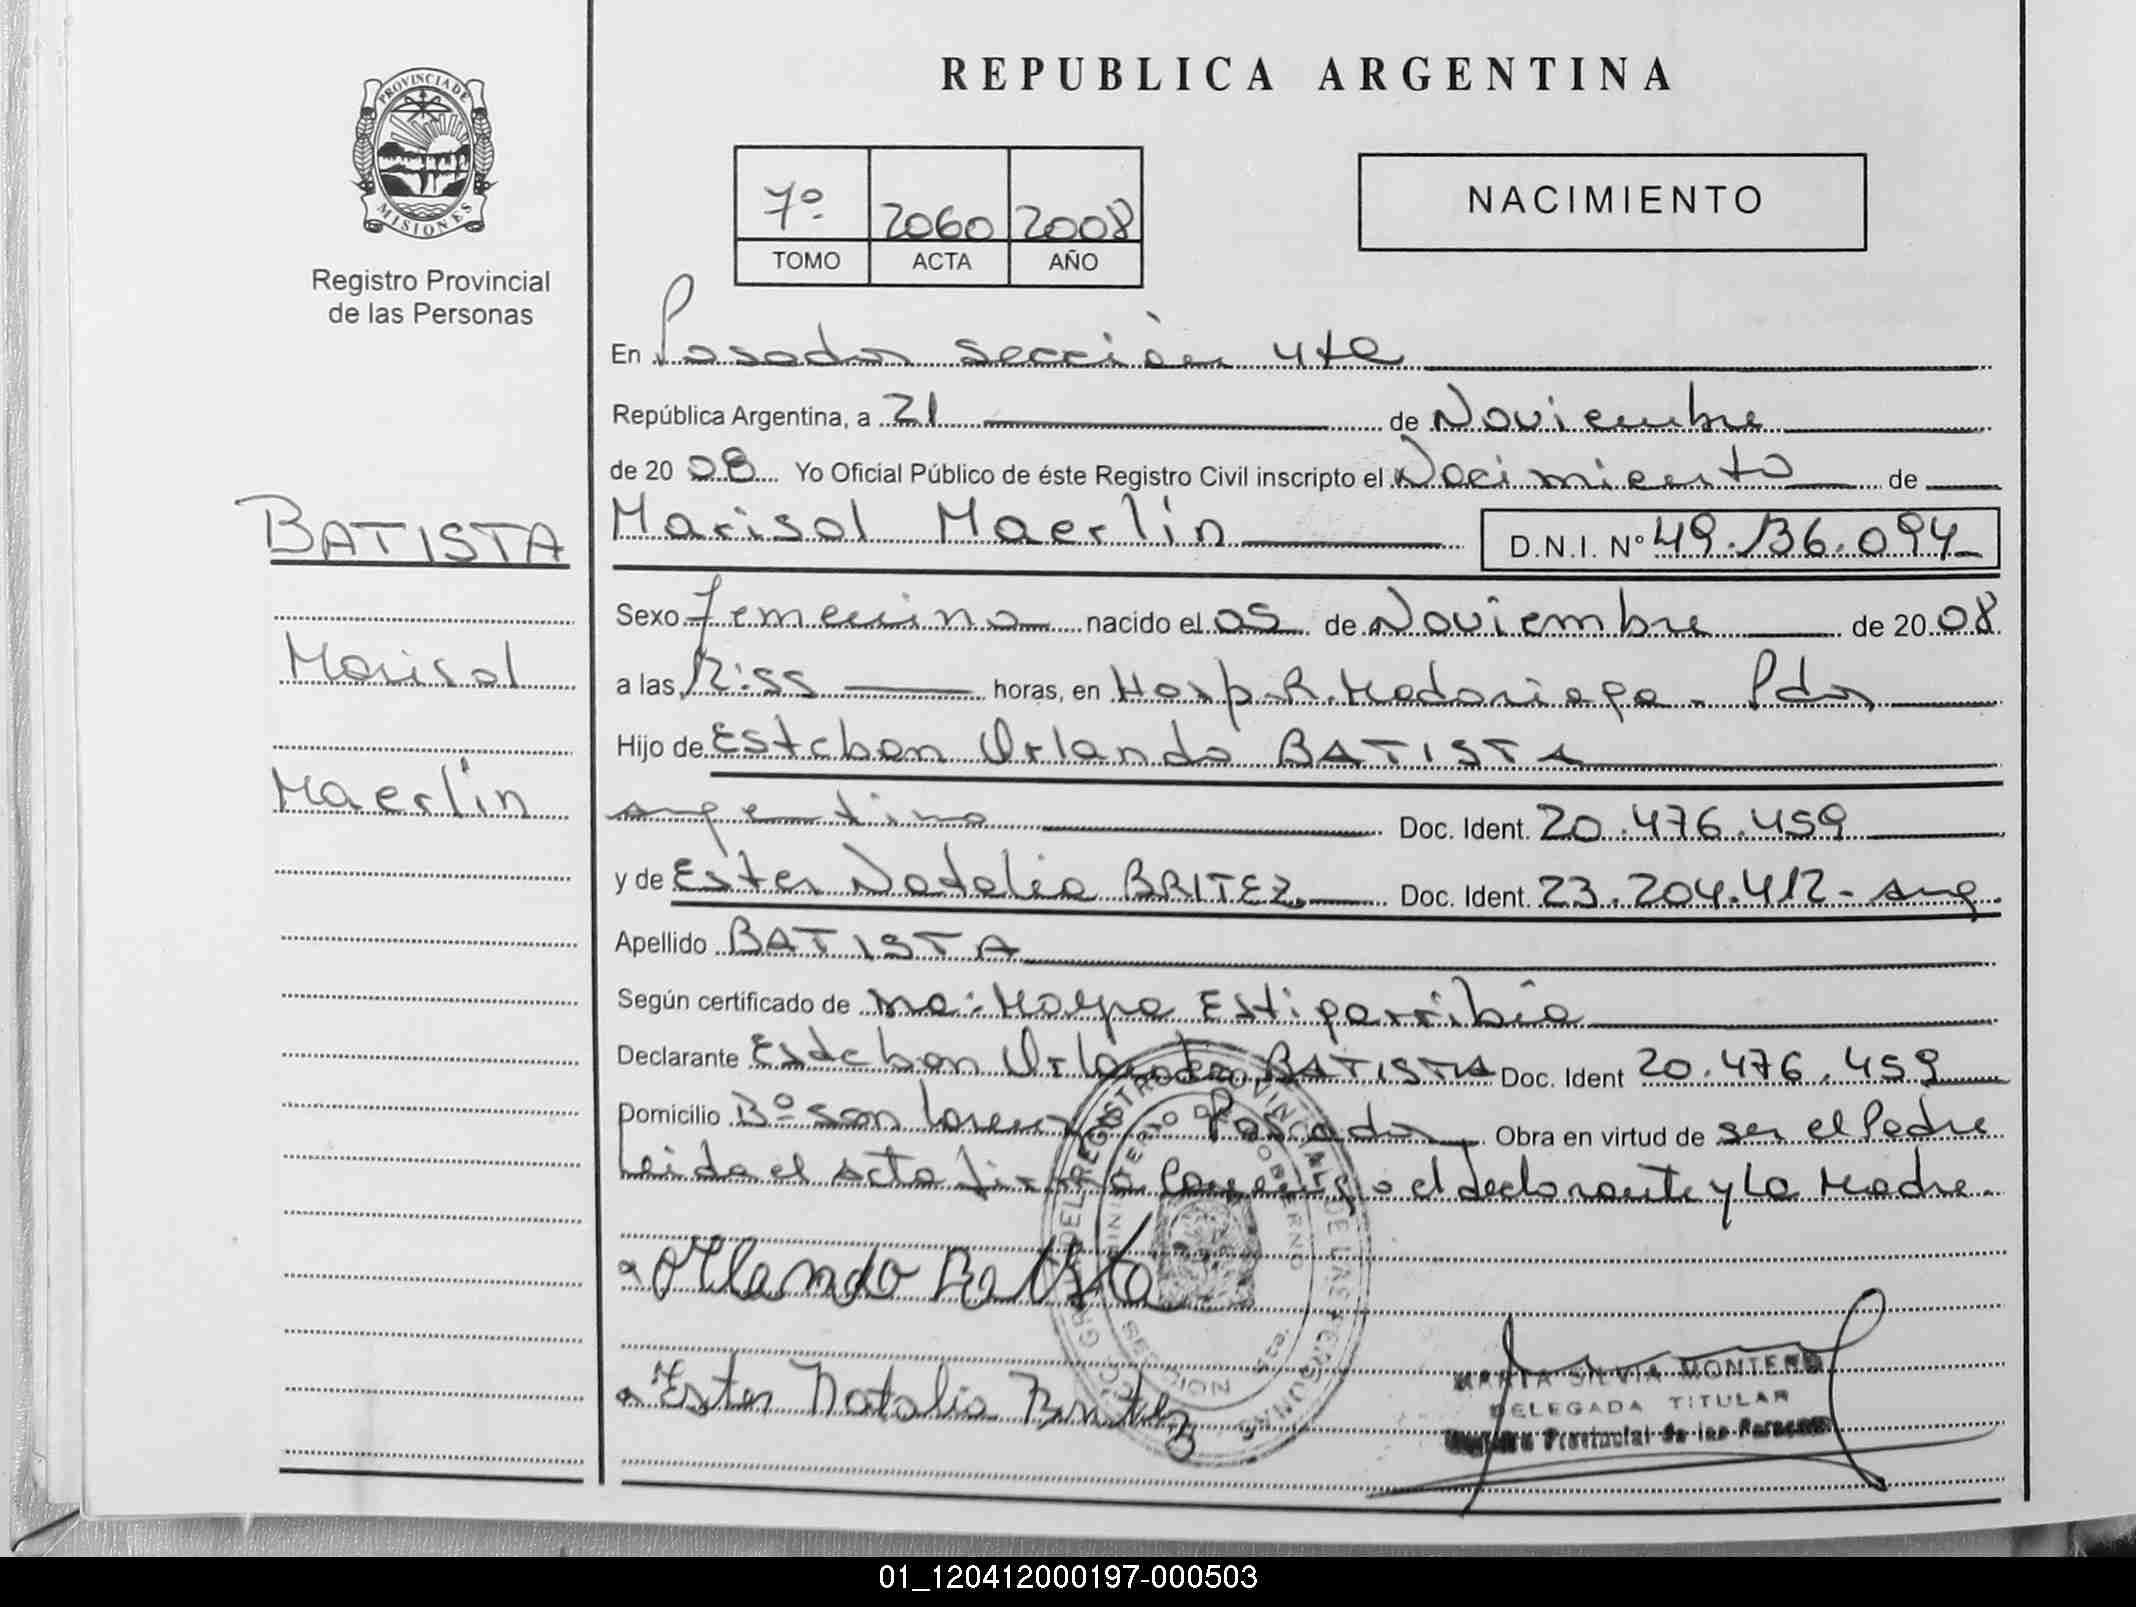 PROVINCIA DE
MISIONES
Registro Provincial
de las Personas
BATISTA
Marisol
Maerlin
REPUBLICA ARGENTINA
7º 2060 2008
TOMO ACTA AÑO
NACIMIENTO
En Posadas sección 4ta
República Argentina, a 21 de Noviembre
de 20 08 Yo Oficial Público de éste Registro Civil inscripto el Nacimiento de
Marisol Maerlin D.N.I. Nº 49.136.094
Sexo Femenino nacido el 05 de Noviembre de 20 08
a las 12:55 horas, en Hosp. R. Madariaga - Pdas
Hijo de Esteban Orlando BATISTA
argentino Doc. Ident. 20.476.459
y de Ester Natalia BRITEZ. Doc. Ident. 23.204.412 - arg.
Apellido BATISTA
Según certificado de Estigarribia
Declarante Esteban Orlando BATISTA Doc. Ident 20.476.459
Domicilio Bº San Lorenzo Posadas Obra en virtud de ser el Padre
Leida el acta firma conmigo el declarante y la Madre.
Orlando Batista
Ester Natalia Britez
MARIA SILVIA MONTERO
DELEGADA TITULAR
Registro Provincial de las Personas
REGISTRO PROVINCIAL DE LAS PERSONAS
MINISTERIO DE GOBIERNO
SECCION 4ta.
01_120412000197-000503